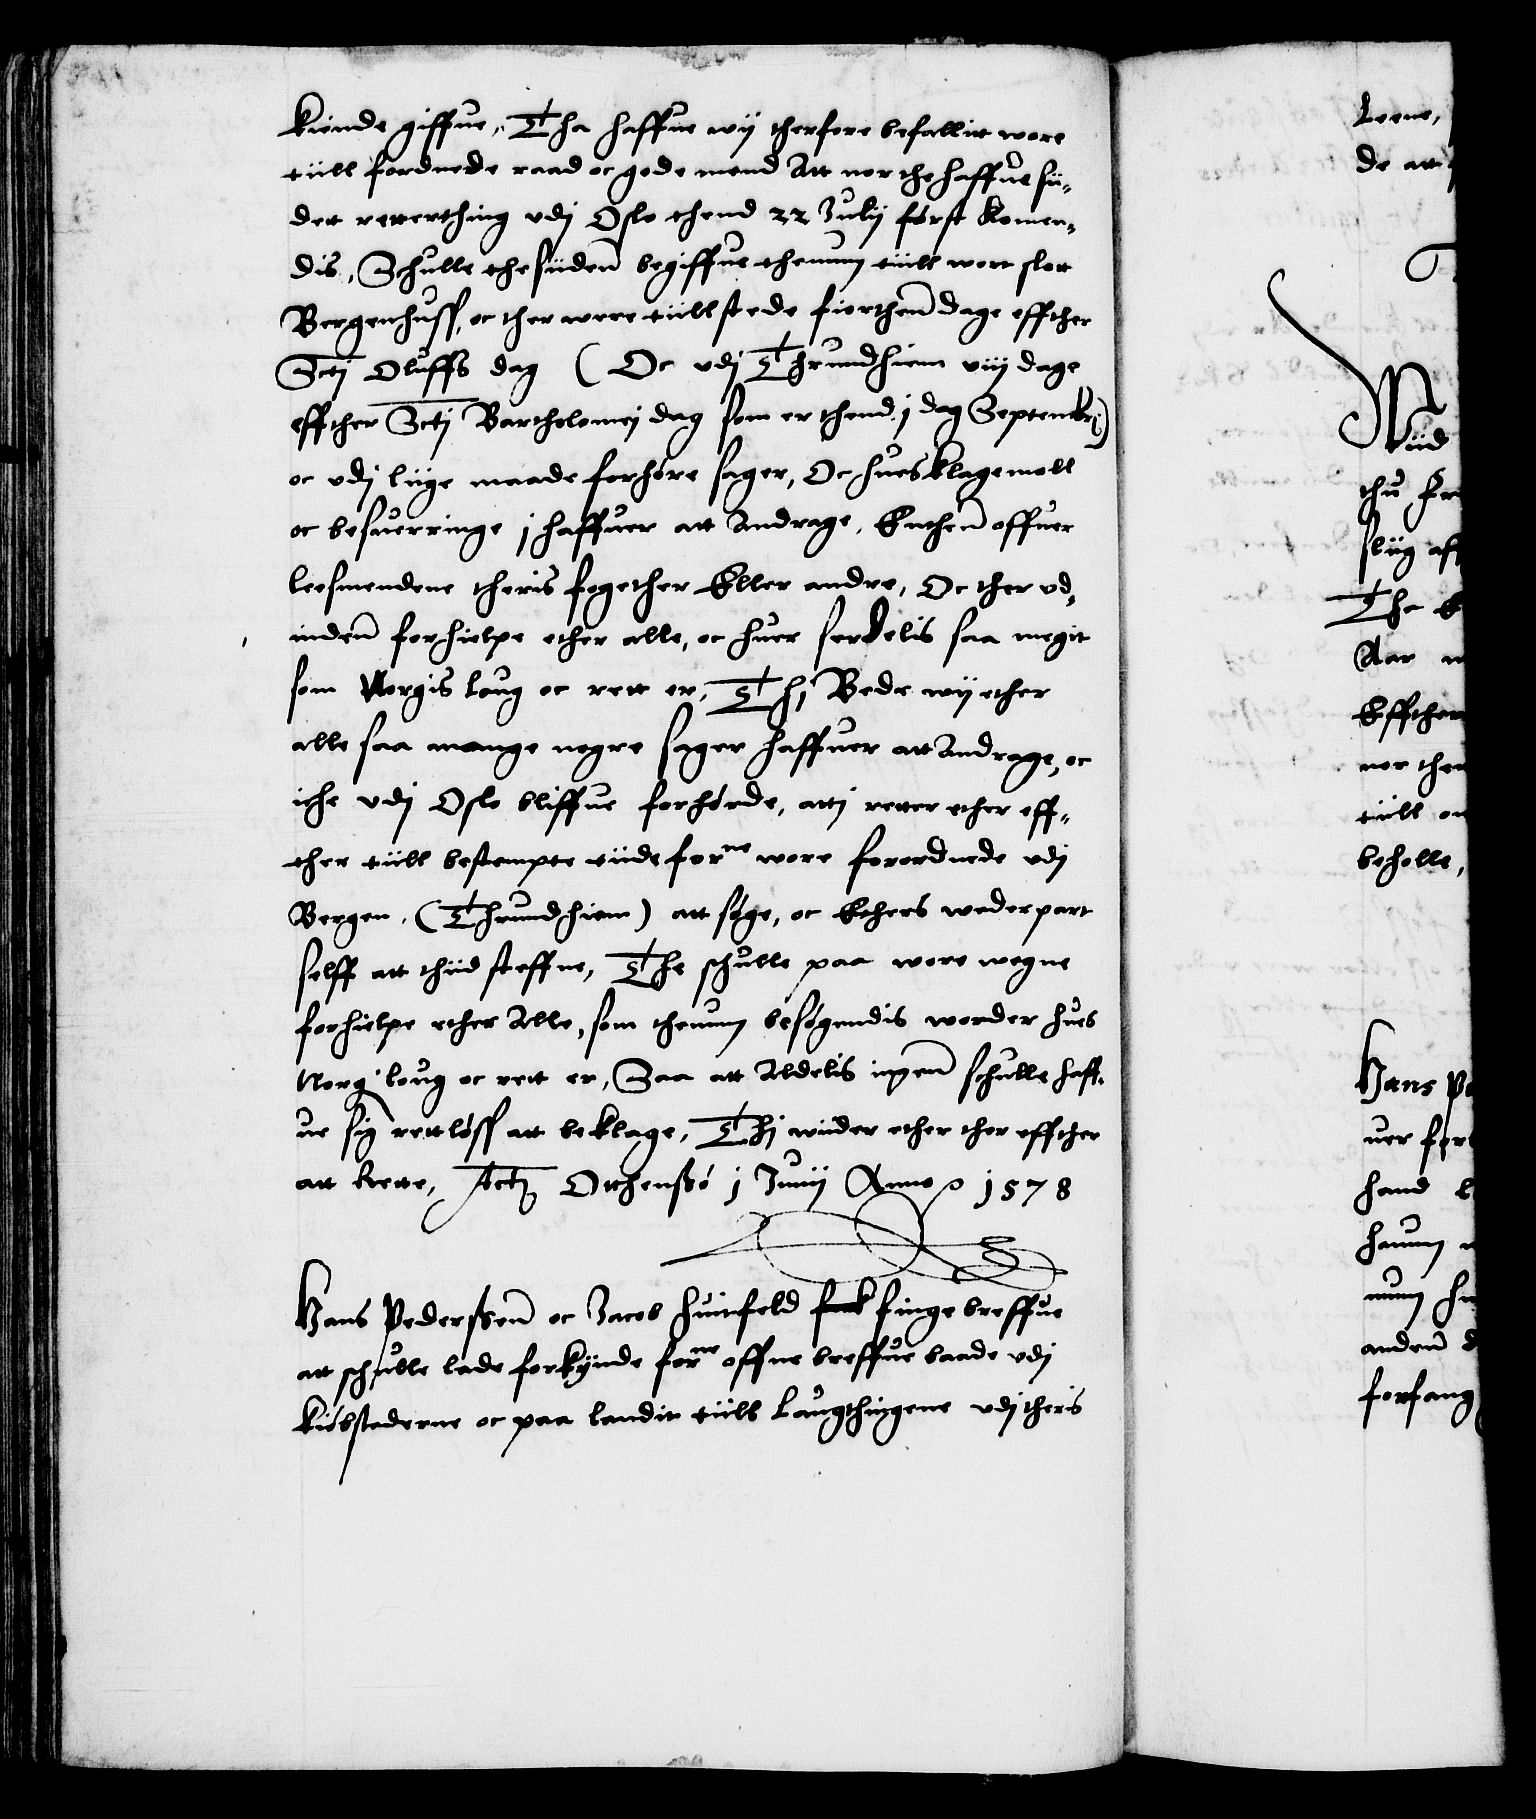 kiende giffue, Tha haffue wij therfore befallitt wore
tiill fordnede raad oc gode mend Att nor the haffue sii-
dett retterthing vdj Oslo thend 22 Julij først komen-
dis, Schulle the siiden begiffue thennum tiill wort slott
Bergenhuss, oc ther were tiillstede fiorthen dage effther
Sctj Oluffs dag (Oc vdj Thrundhiem viij dage
effther Sctj Bartholomej dag som er thend j dag Septembrj)
oc vdj liige maade forhøre sager, Oc hues klagemoll
oc besuerringe j haffuer att Andrage, Enthen offuer
leensmendene theris fogether Eller andre, Oc ther vd-
inden forhielpe ether alle, oc huer serdelis saa megit
som Norgis loug oc rett er, Thj Bede wij ether
alle saa mange nogre sager haffuer att Andrage, oc
iche vdj Oslo bliffue forhørde, att j retter ether eff-
ther tiill bestempte tiide forne wore forordnede vdj
Bergen, (Thrundhiem) att søge, oc Ethers wederpart
selff att thiid steffne, The schulle paa wore wegne
forhielpe ether Alle, som thennum besøgendis worder hues
Norg: loug oc rett er, Saa att Aldelis ingen schulle haff-
ue sig rettløss att beklage, Thj wiider ether ther effther
att Rette, Actj Otthensø j Junij Anno 1578
Hans Pedersen oc Jacob Huitfeld fick finge breffue
att schulle lade forkynde forne offne breffue baade vdj
kiøbstederne oc paa landit tiill Laugthingene vdj theris
Leene,
de att
Wiid
thu
sliig aff
Tha
Aar
Effther
nor ther
tiill
beholle,
Hans
uer
hand
hanum
num
anden
forfang